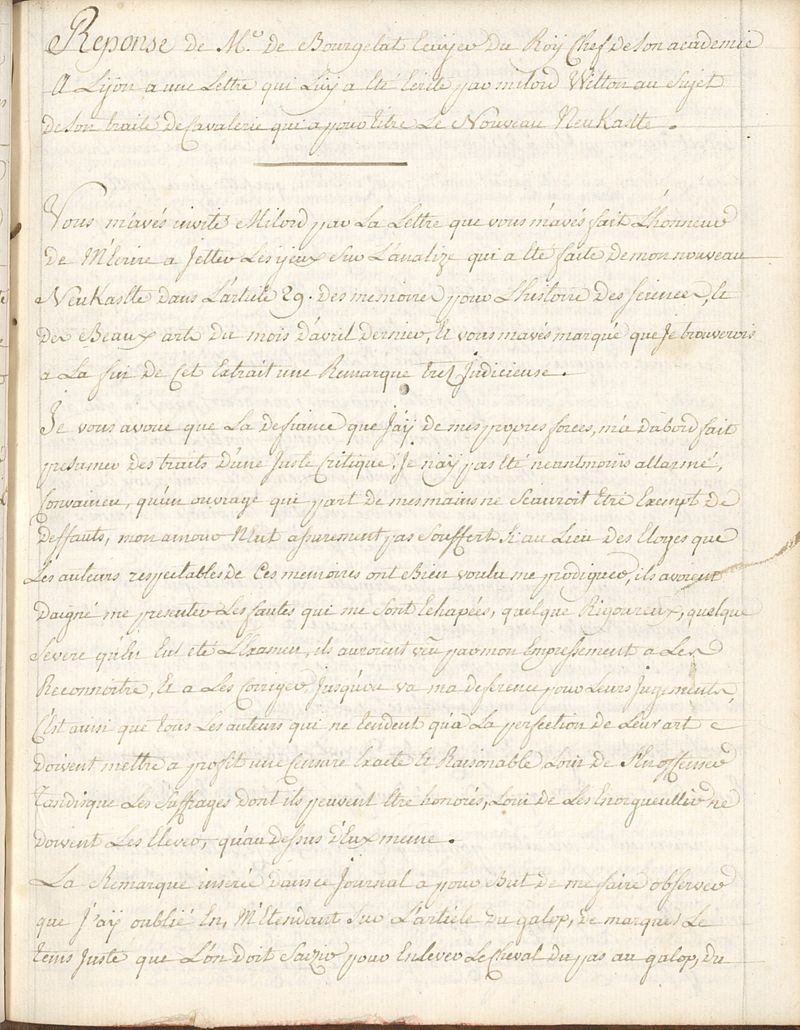 Reponse de Mr. de Bourgelat Ecuyer du Roy Chef de son academie
A Lyon a une Lettre qui Luy a Eté Ecrite par milord Wilton au Sujet
de son traité de Cavalerie qui a pour titre Le Nouveau NeuKastle.
Vous m'avés invité Milord par La Lettre que vous m'avés fait L'honneur
de M'Ecrire a Jetter Les yeux Sur L'analize qui a Eté faite de mon nouveau
NeuKastle dans L'article 29. des memoires pour L'histoire des Sciences, Et
des Beaux arts du mois d'avril dernier, Et vous m'avés marqué que Je trouverois
a La fin de Cet Extrait une Remarque trez Judicieuse.
Je vous avoue que La defiance que J'aÿ de mes propres forces, m'a d'abord fait
presumer des traits d'une Juste Critique, Je n'aÿ pas Eté neantmoins allarmé,
Convaincu, qu'un ouvrage qui part de mes mains ne Scauroit Etre Exempt de
deffauts, mon amour N'Eut assurement pas Souffert Si au Lieu des Eloges que
Les auteurs respectables de Ces memoires ont Bien voulu me prodiguer, ils avoient
daigné me presenter Les fautes qui me Sont Echapées, quelque Rigoureux, quelque
Severe qu'En Eut eté L'Examen, ils auroient vû par mon Empressement a Les
Reconnoitre, Et a Les Corriger Jusqu'ou va ma deference pour Leurs Jugements,
C'Est ainsi que tous Les auteurs qui ne tendent qu'a La perfection de Leur art
doivent mettre a profit une Censure Exacte Et Raisonable Loin de S'En offenser
Tandisque Les Suffrages dont ils peuvent Etre honorés, Loin de Les Enorgueullir ne
doivent Les Elever, qu'au dessus d'Eux meme.
La Remarque inserée dans ce Journal a pour But de me faire observer
que J'aÿ oublié En, M'Etendant Sur L'article du galop, de marquer Le
tems Juste que L'on doit Saizir pour Enlever Le Cheval du pas au galop, du